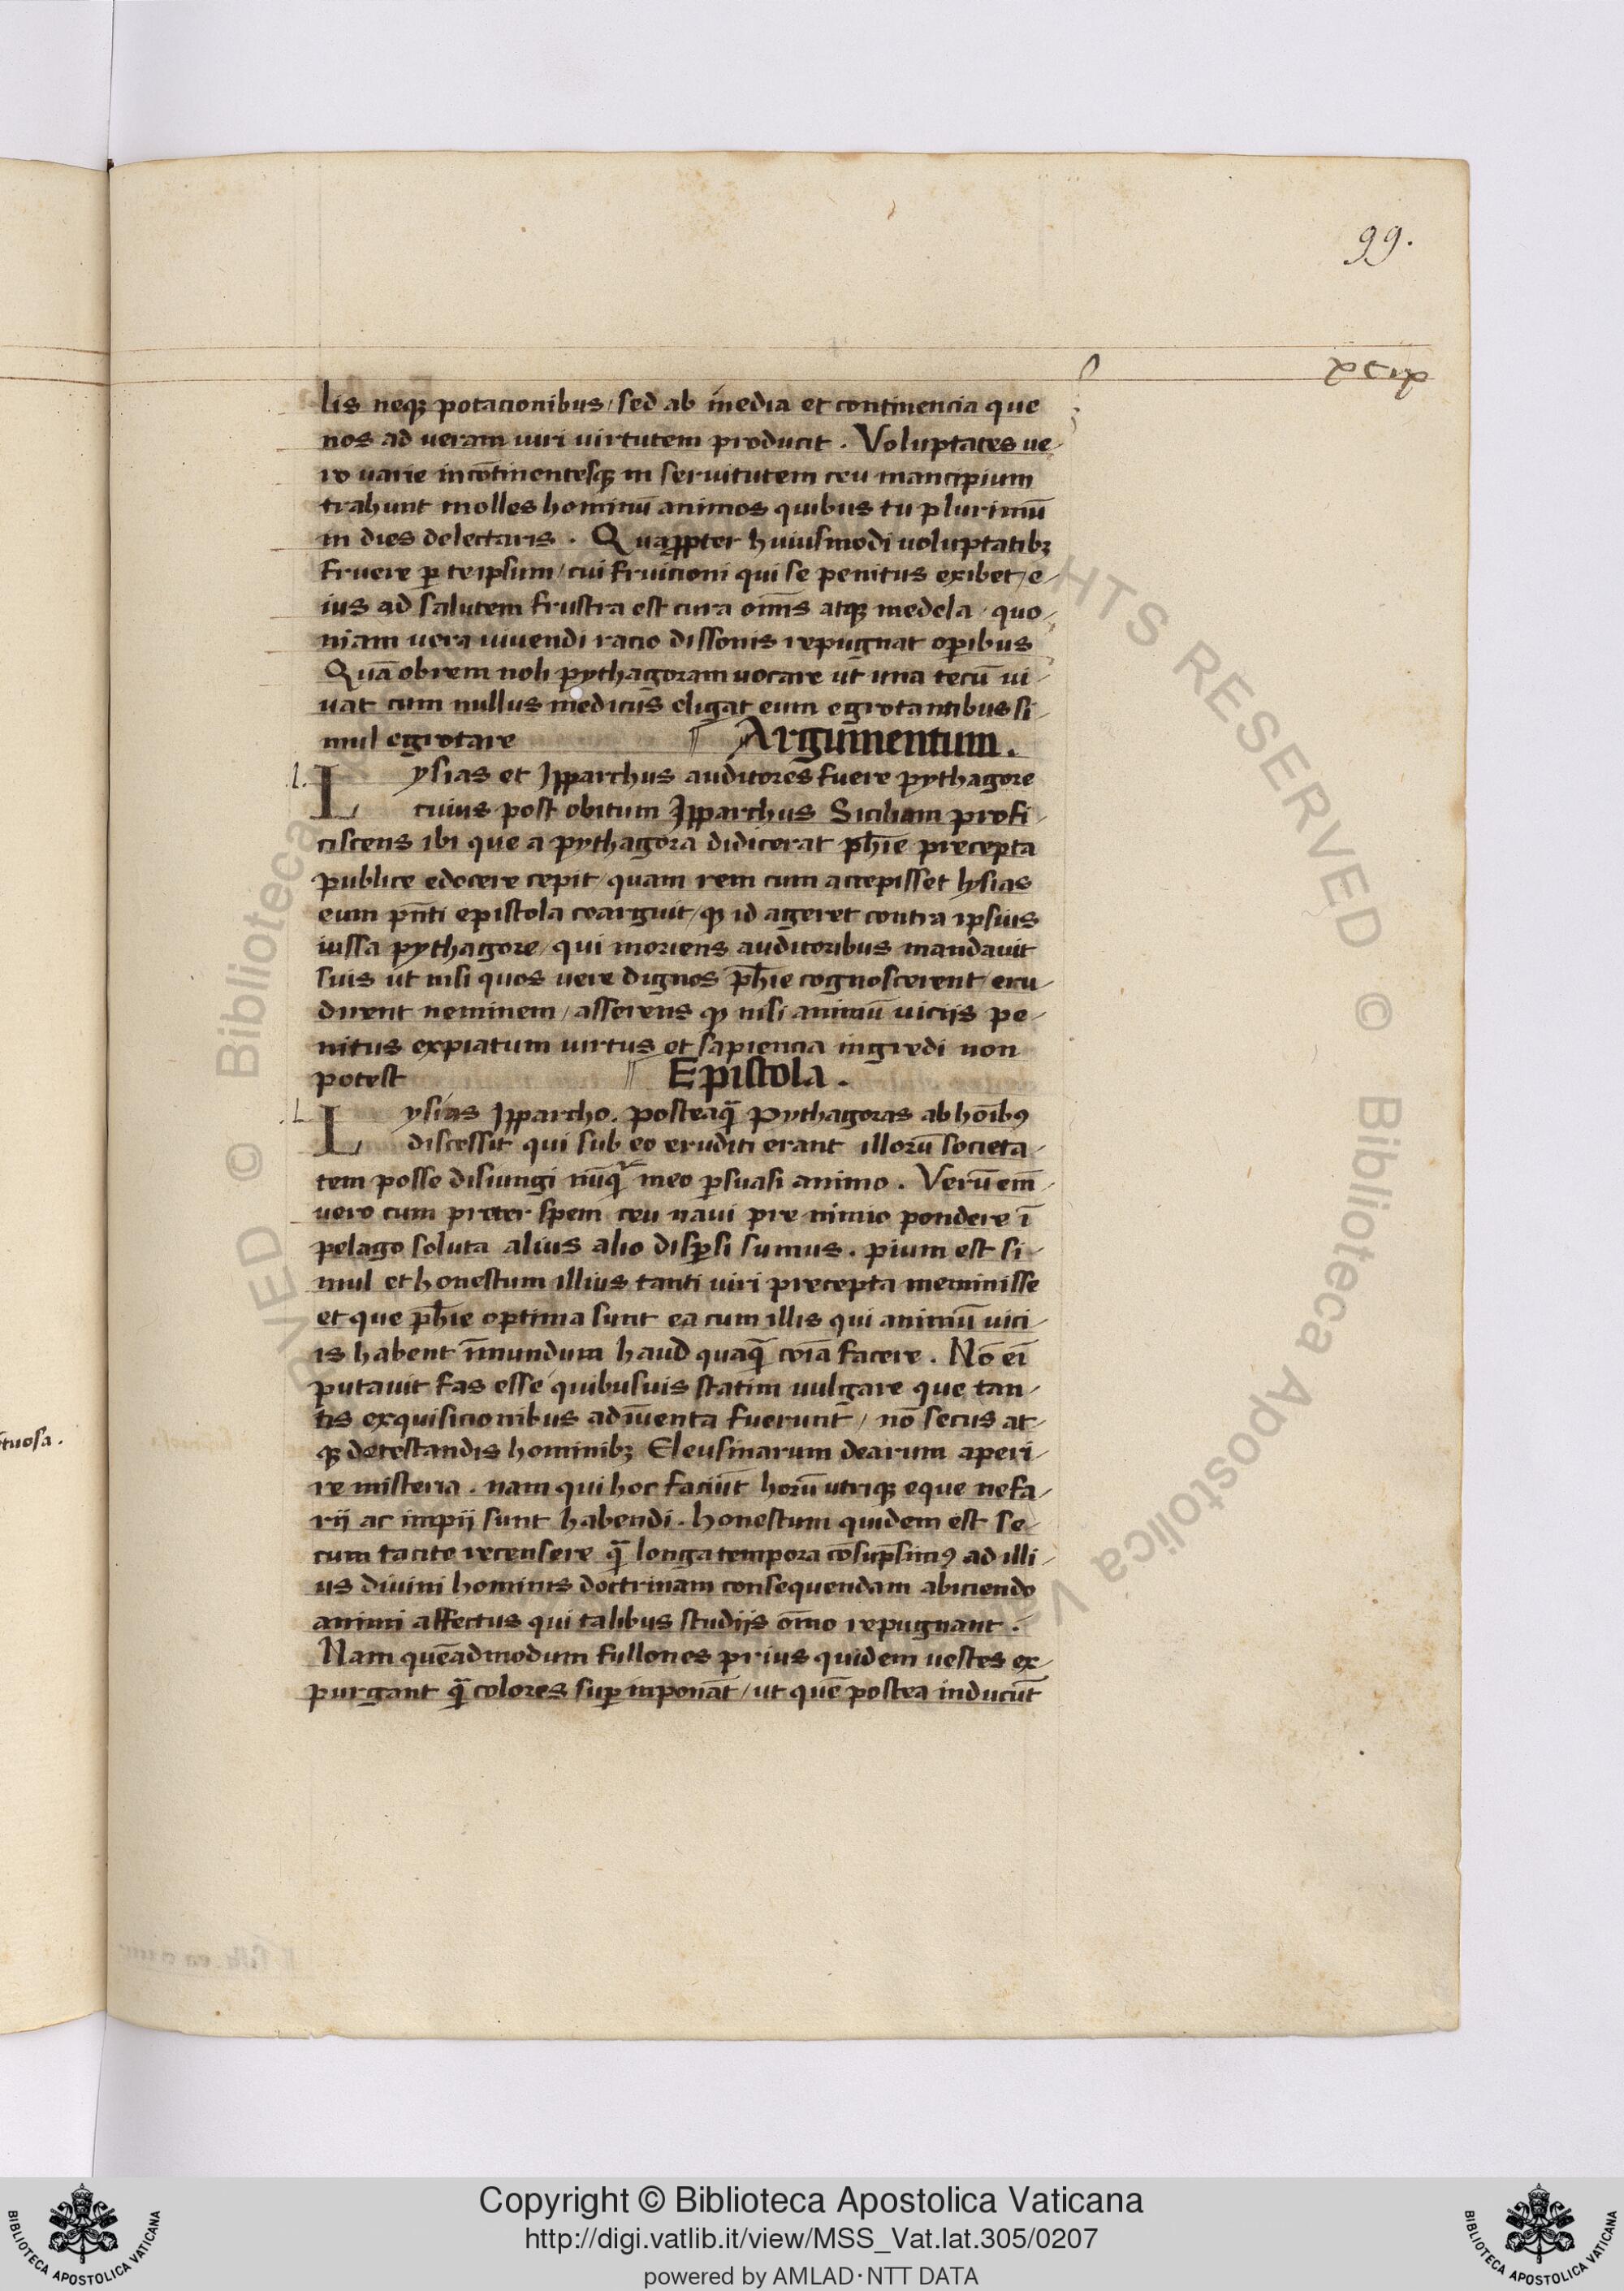 99.
xcix
lis neqꝫ potacionibus / sed ab inedia et continencia que
nos ad veram viri virtutem producit . Voluptates ve-
ro varie incōtinentesqꝫ in servitutem ceu mancipium
trahunt molles hominū animos quibus tu plurimū
in dies delectaris . Quaꝓpter huiusmodi voluptatibꝫ
fruere ꝑ teipsum / cui fruicioni qui se penitus exibet / e-
ius ad salutem frustra est cura om̄is atqꝫ medela / quo-
niam vera vivendi racio dissonis repugnat oꝑibus
Quā obrem noli pythagoram vocare ut una tecū vi-
vat cum nullus medicus eligat eum egrotantibus si-
mul egrotare Argumentum .
.l. Lysias et Ipparchus auditores fuere pythagore
cuius post obitum Ipparchus Siciliam profi-
ciscens ibi que a pythagora didicerat ph̄ie precepta
publice edocere cepit / quam rem cum accepisset lysias
eum pn̄ti epistola coarguit / ꝙ id ageret contra ipsius
iussa pythagore / qui moriens auditoribus mandavit
suis ut nisi quos vere dignos ph̄ie cognoscerent / eru-
dirent neminem / asserens ꝙ nisi animū viciis pe-
nitus expiatum virtus et sapiencia ingredi non
potest Epistola .
.L Lysias Ipparcho . posteaq̄ Pythagoras ab hoībꝰ
discessit qui sub eo eruditi erant illorū societa-
tem posse disiungi nūq̄ meo ꝑsuasi animo . Verū em̄-
vero cum preter spem ceu navi pre nimio pondere ī
pelago soluta alius alio disꝑsi sumus . pium est si-
mul et honestum illius tanti viri precepta meminisse
et que ph̄ie optima sunt ea cum illis qui animū vici-
is habent īmundum haud quaq̄ coīa facere . Nō ei̅
putavit fas esse quibusvis statim vulgare que tan-
tis exquisicionibus adīventa fuerunt / nō secus at-
qꝫ detestandis hominibꝫ Eleusinarum dearum aperi-
re misteria . nam qui hoc faciūt horū utriqꝫ eque nefa-
rij ac impij sunt habendi . honestum quidem est se-
cum tacite recensere q̄ longa tempora cōsūpsimꝰ ad illi-
us divini hominis doctrinam consequendam abiciendo
animi affectus qui talibus studijs om̄o repugnant .
Nam quēadmodum fullones prius quidem vestes ex-
purgant q̄ colores suꝑ inponāt / ut quē postea inducūt
tuosa .
Copyright © Biblioteca Apostolica Vaticana
http://digi.vatlib.it/view/MSS_Vat.lat.305/0207
powered by AMLAD·NTT DATA
BIBLIOTECA APOSTOLICA VATICANA
BIBLIOTECA APOSTOLICA VATICANA